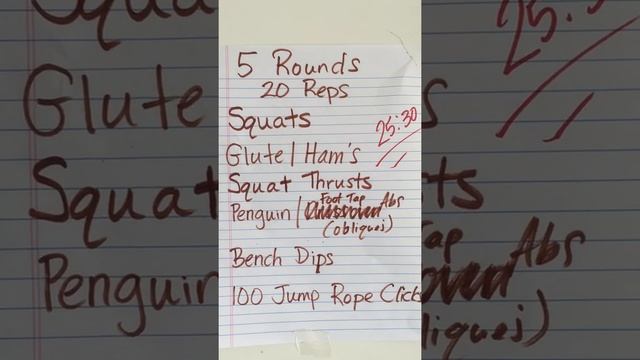 5 Rounds
20 Reps
Squats
25:30
Glute/Ham's
Squat Thrusts
Foot Tap
Penguin/ Abs
(obliques)
Bench Dips
100 Jump Rope Clicks